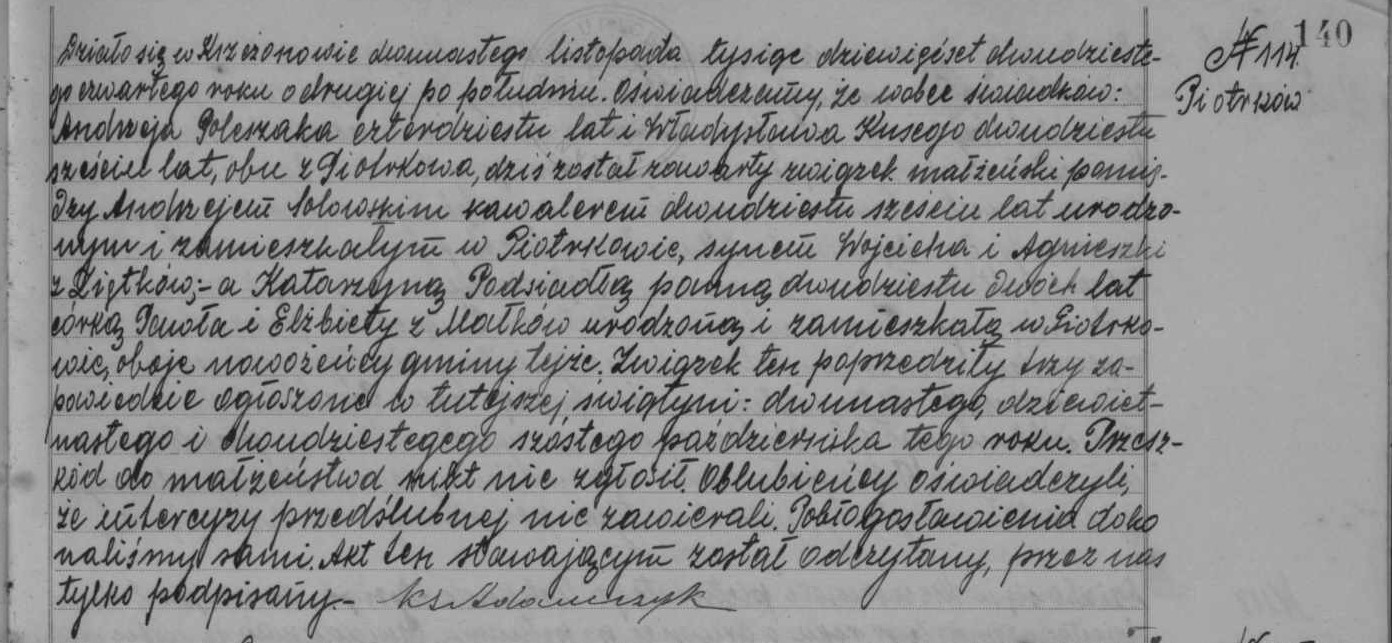 140
№ 114.
Piotrków
Działo się w Krzczonowie dwunastego listopada tysiąc dziewięćset dwudzieste-
go czwartego roku o drugiej po południu. Oświadczamy, że wobec świadków:
Andrzeja Poleszaka czterdziestu lat i Władysława Kusego dwudziestu
sześciu lat, obu z Piotrkowa, dziś został zawarty związek małżeński pomię-
dzy Andrzejem Sobowskim kawalerem dwudziestu sześciu lat urodzo-
nym i zamieszkałym w Piotrkowie, synem Wojciecha i Agnieszki
z Ziętków,- a Katarzyną Podsiadłą panną dwudziestu dwóch lat
córką Pawła i Elżbiety z Małków urodzoną i zamieszkałą w Piotrko-
wie, oboje nowożeńcy gminy tejże. Związek ten poprzedziły trzy za-
powiedzie ogłoszone w tutejszej świątyni: dwunastego, dziewięt-
nastego i dwudziestegego szóstego października tego roku. Przesz-
kód do małżeństwa nikt nie zgłosił. Oblubieńcy oświadczyli,
że intercyzy przedślubnej nie zawierali. Pobłogosławienia doko
naliśmy sami. Akt ten stawającym został odczytany, przez nas
tylko podpisany.- Ks Adamczyk